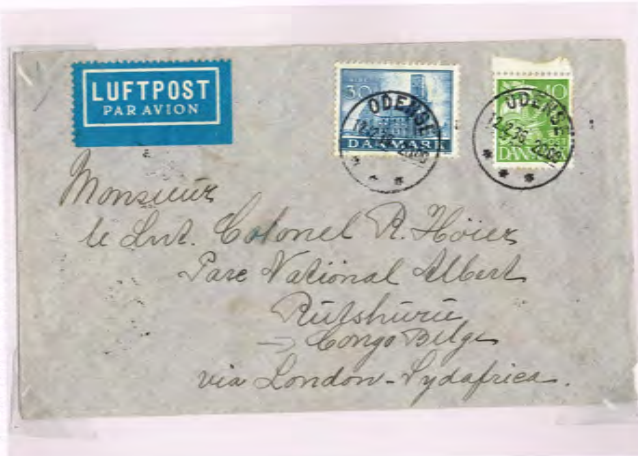 LUFTPOST
PAR AVION
30
DANMARK
ODENSE
10
ODENSE
Monsieur
le Lnt. Colonel R. Höier
Parc National Albert
Rutshuru
Congo Belge
via London-Sydafrica.